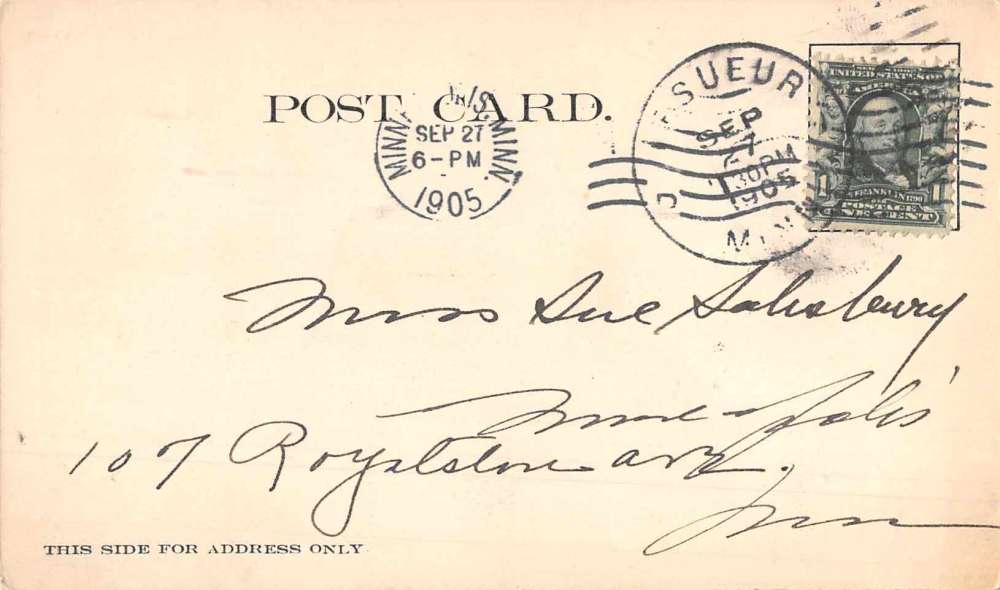 POST CARD.
MINN MINN.
SEP 27
6-PM
1905
SUEUR
SEP
27
30PM
1905
MINN
UNITED STATES OF
AMERICA
FRANKLIN 1790
POSTAGE
ONE CENT
Miss Sue Salisbury
Minneapolis
107 Royalston ave.
Minn
THIS SIDE FOR ADDRESS ONLY